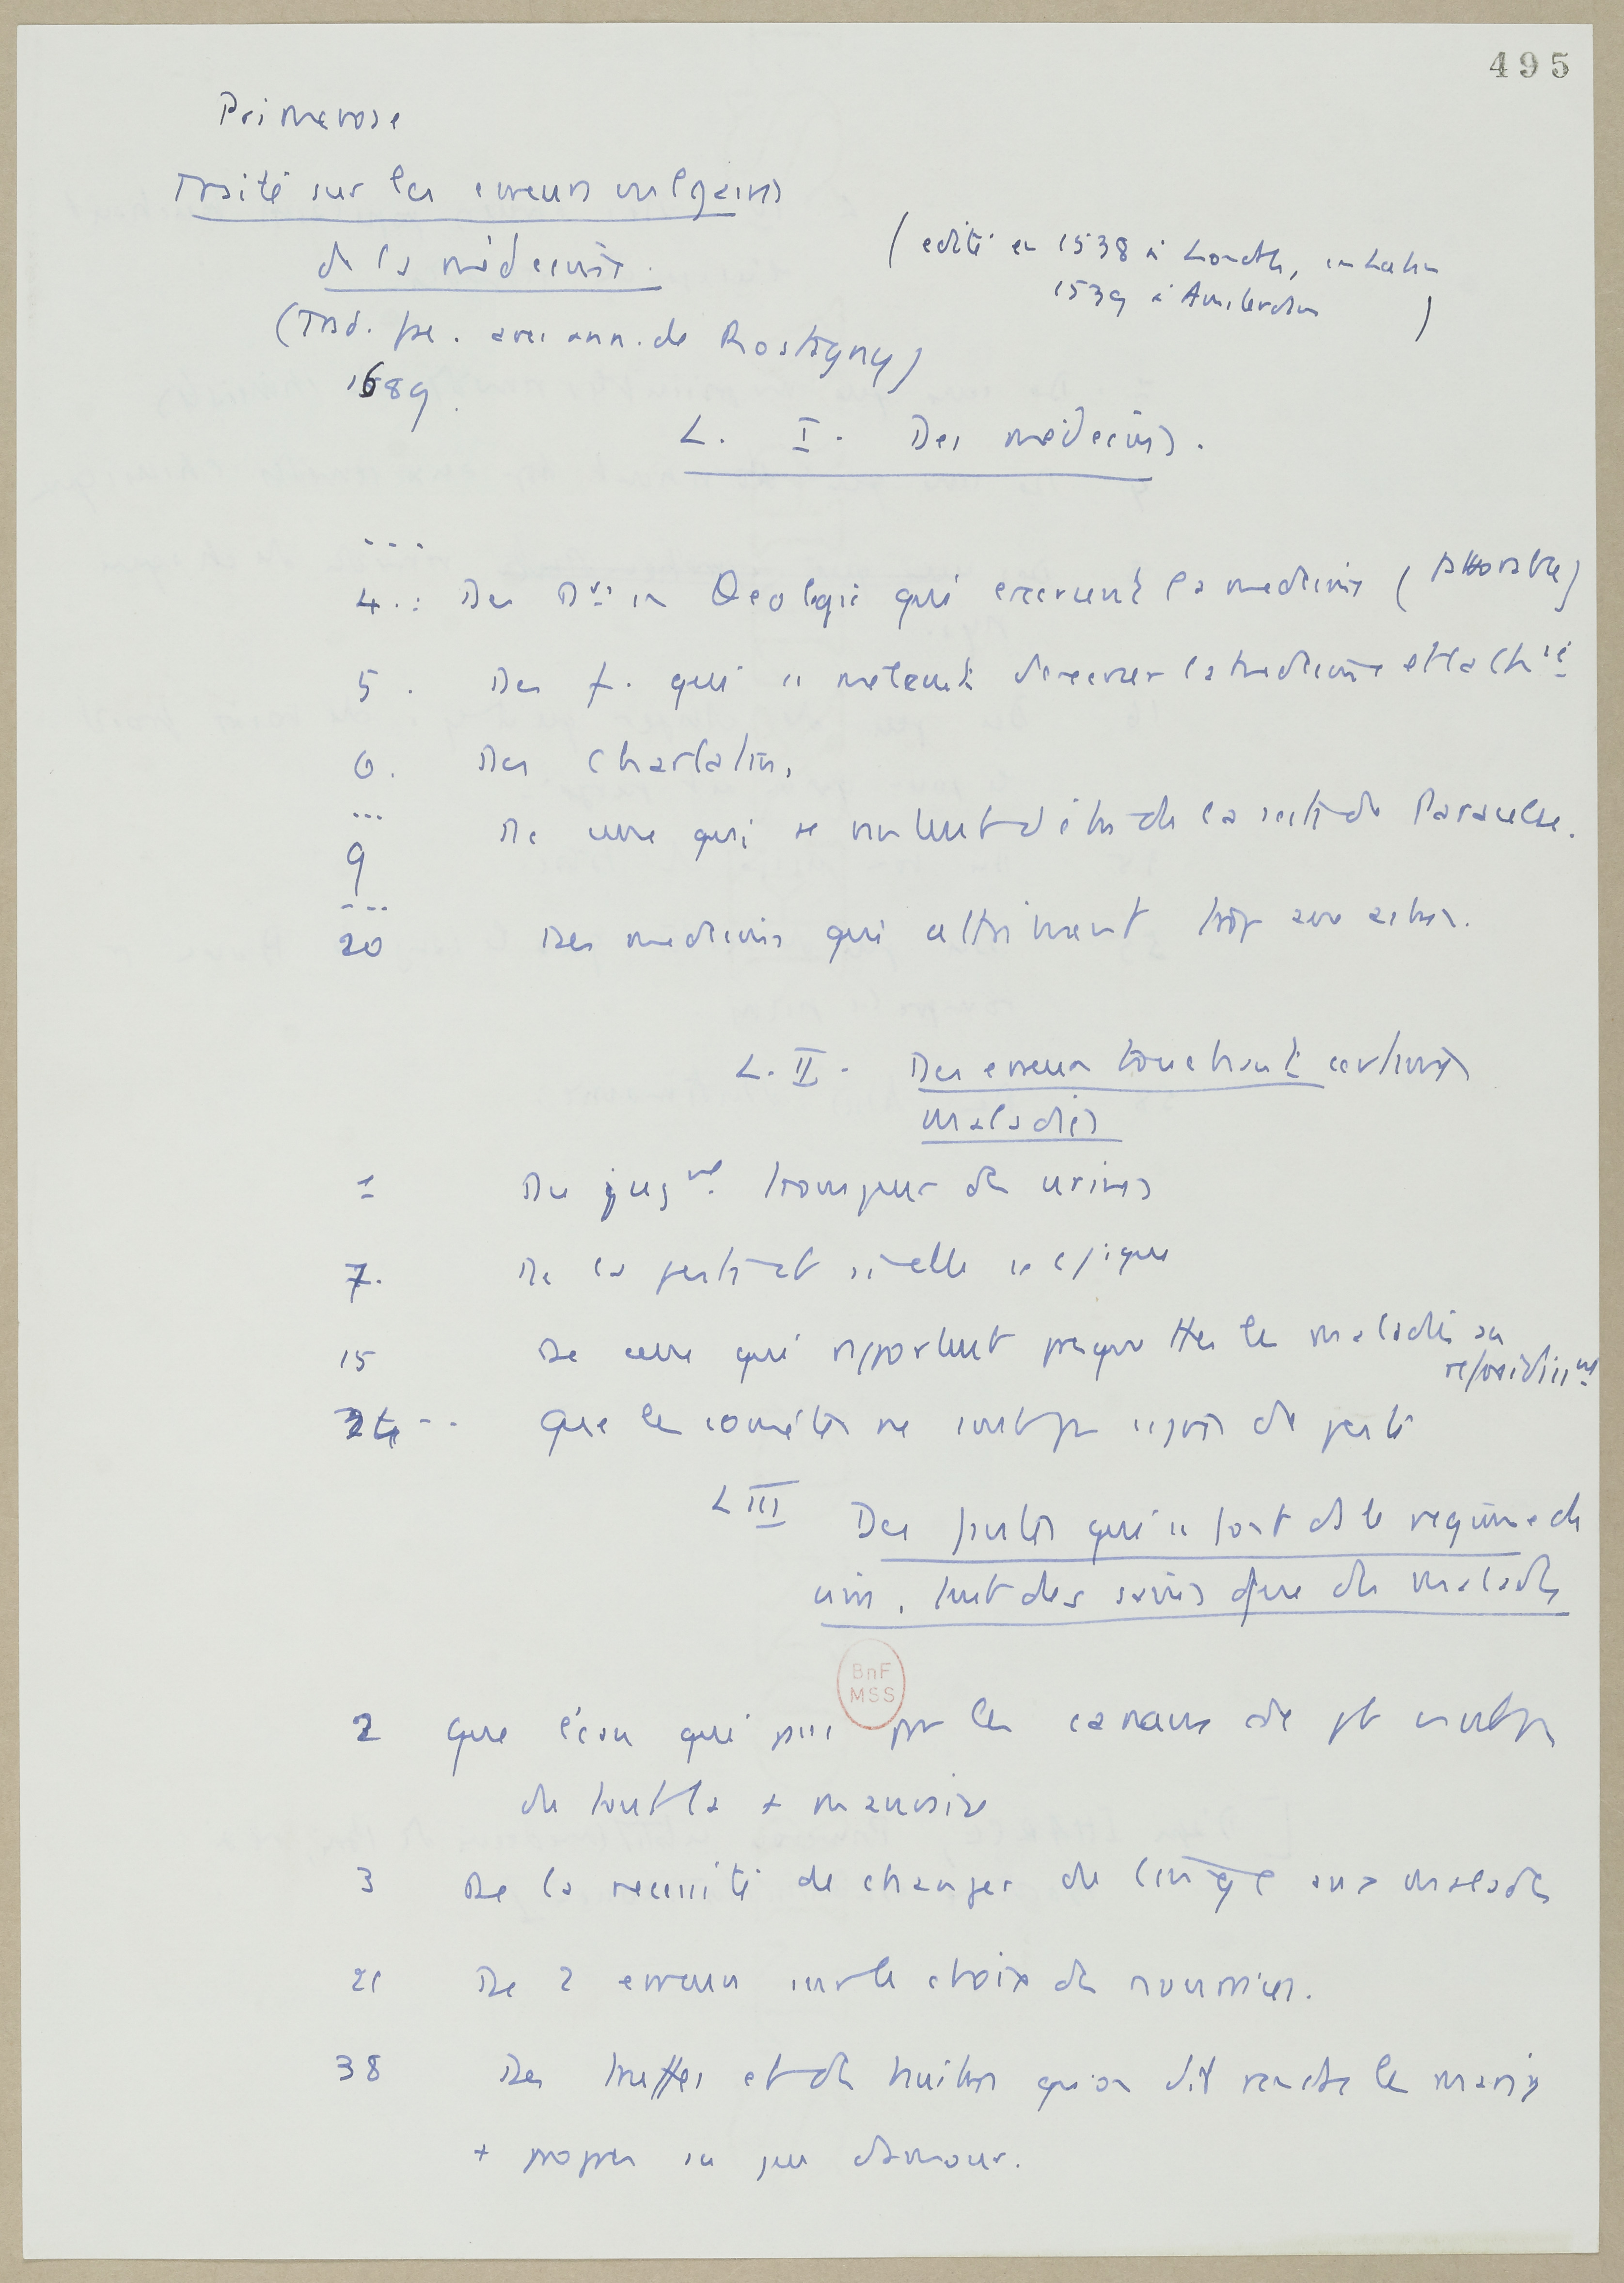 495
Primerose
Traité sur les erreurs vulgaires
de la médecine.
(edité en 1538 à Londres, en latin
1539 à Amsterdam)
(Trad. fse. avec ann. de Rostagny)
1689.
L. I. Des médecins.
...
4.: Des Drs en θeologie qui exercent la medecine
5. Des f. qui se melent d'exercer la medecine et la chie
6. Des Charlatans.
...
9 De ceux qui se vantent d'être de la secte de Paracelse.
...
20 Des medecins qui attribuent trop aux astres.
L. II. Des erreurs touchant certaines
maladies
1 Du jugmt trompeur des urines
7. De la peste et si elle
15 De ceux qui rapportent presque ttes les maladies au
refroidissmt
24 -- Que les comètes ne sont pas signes de peste
L III Des fautes qui se font ds le regime de
vivre, tant des sains que des malades
BnF
MSS
2 que l'eau qui passe par les canaux de pb n'est pas
du tout la + mauvaise
3 De la necessité de changer de linge aux malades
21 De 2 erreurs sur le choix des nourrices.
38 Des truffes et des huitres qu'on dit rendre les maris
+ propres au jeu d'amour.